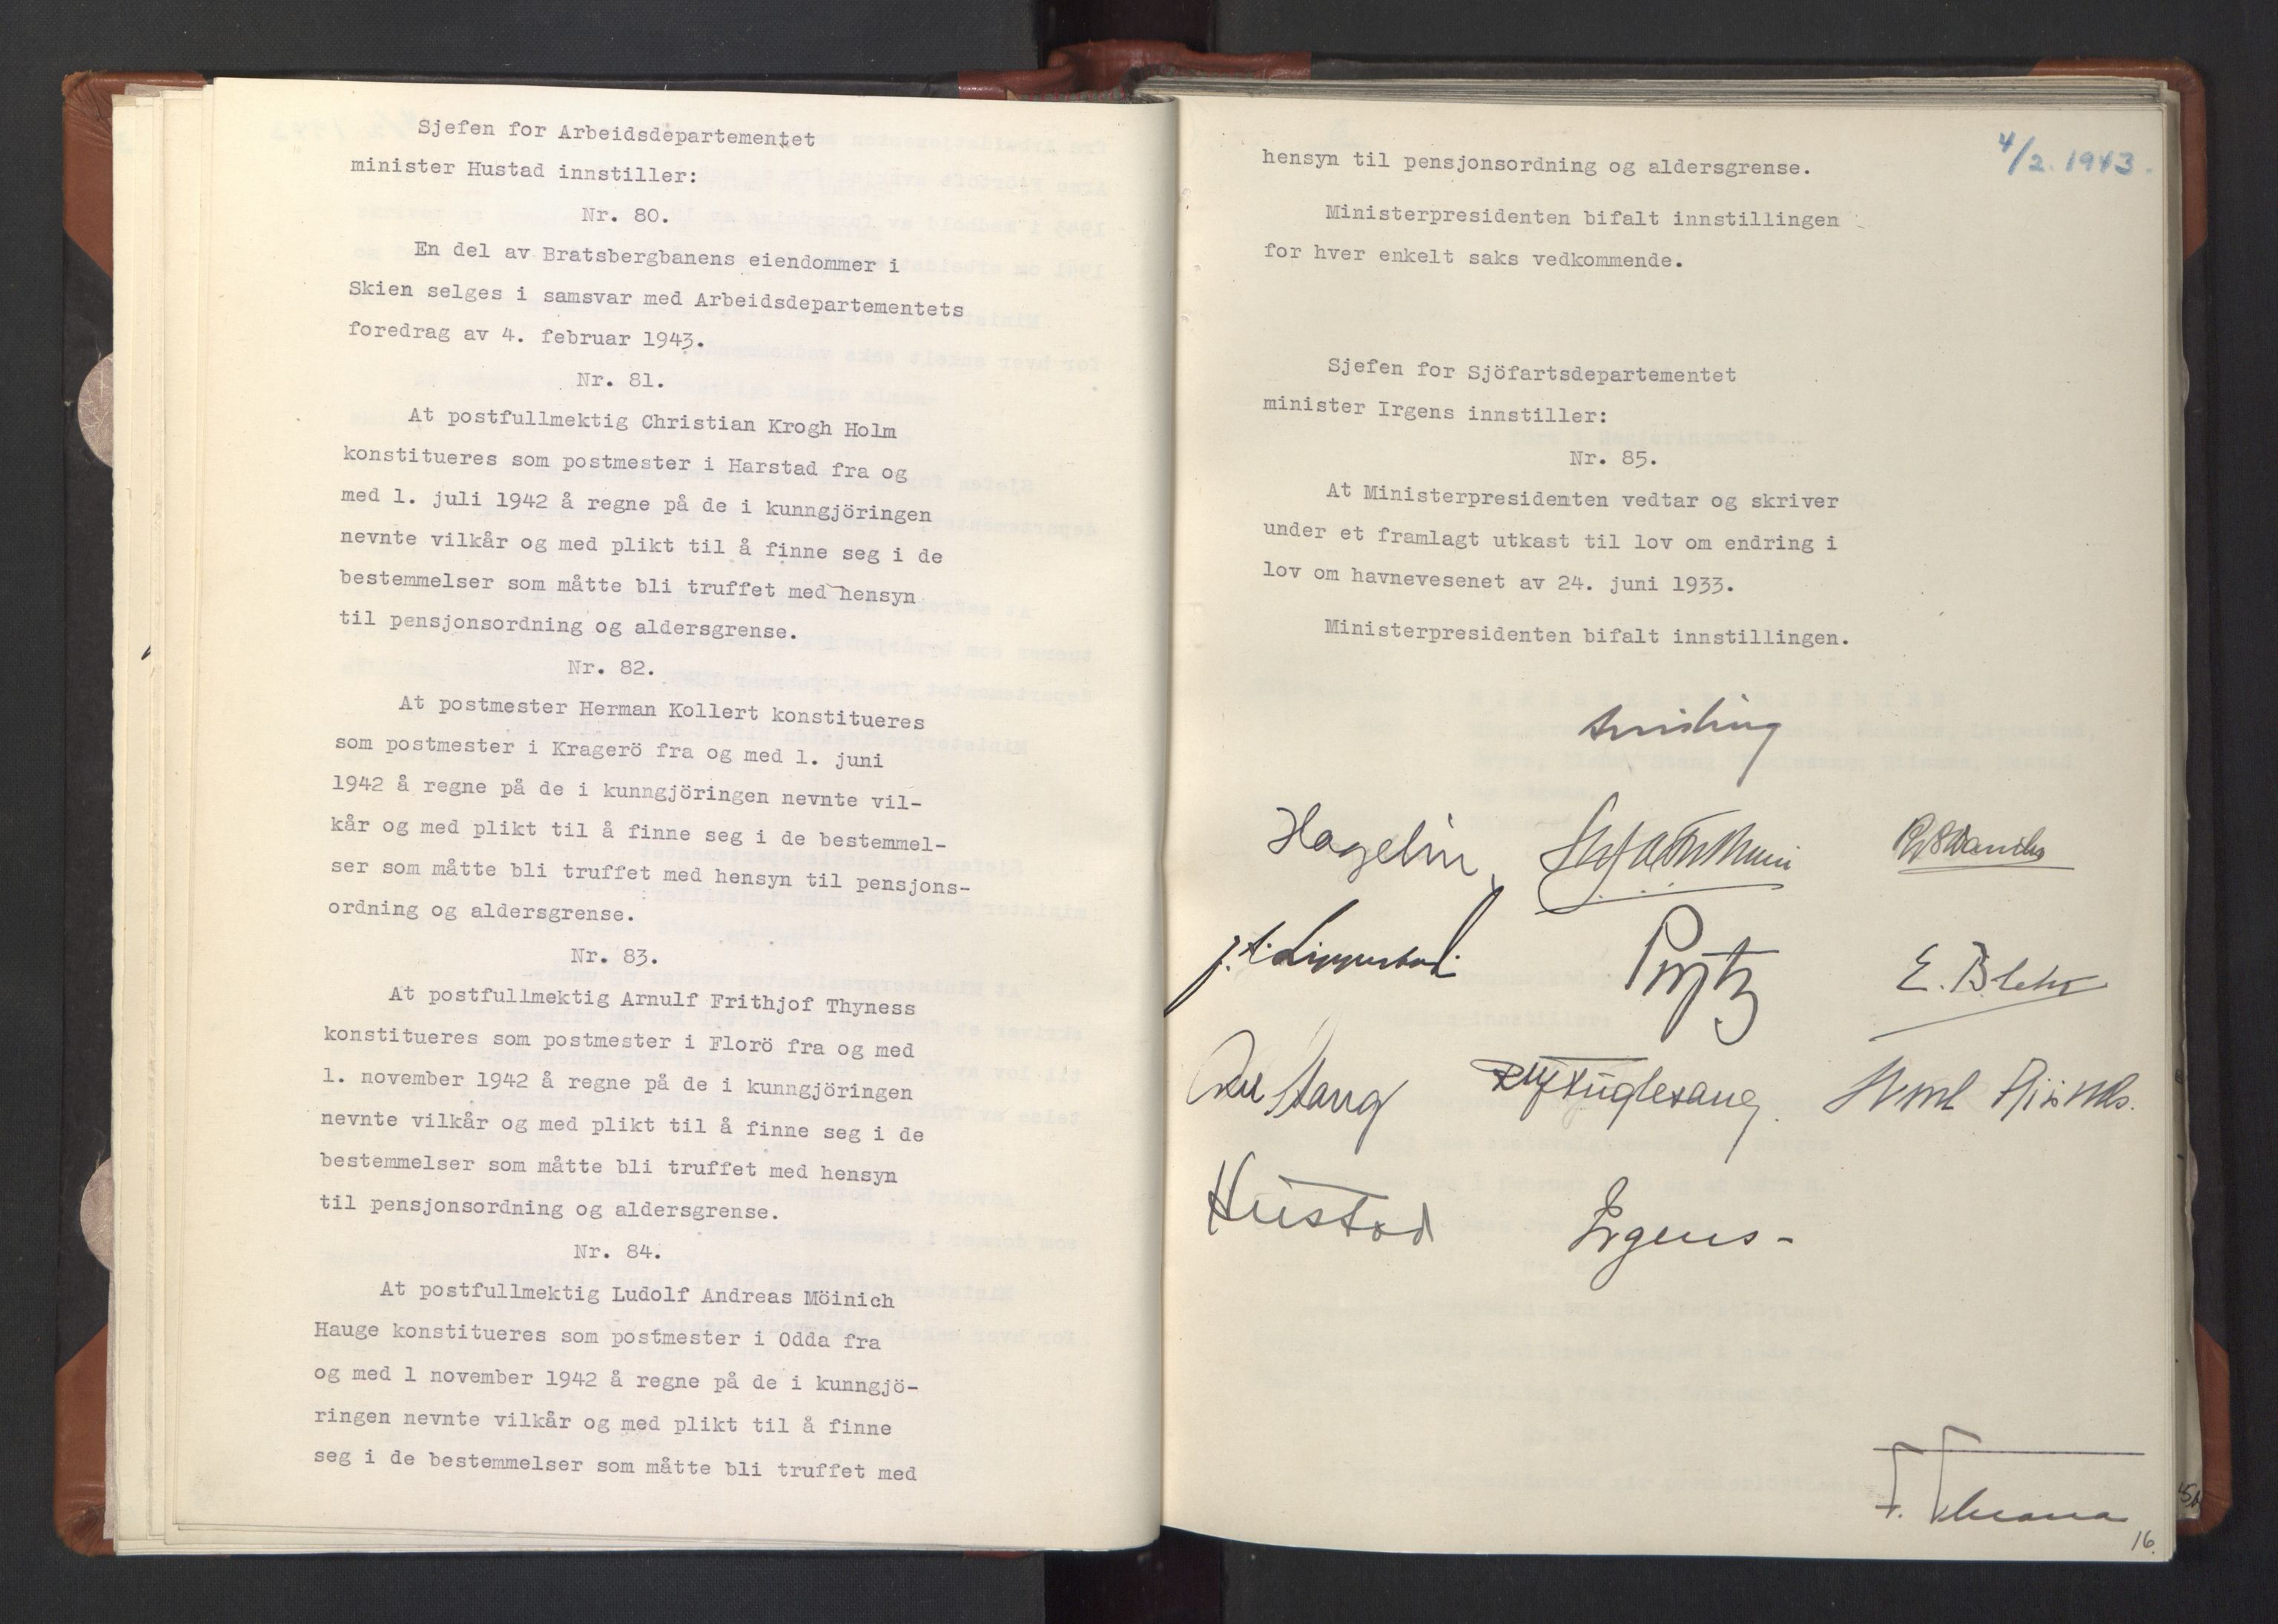 Sjefen for Arbeidsdepartementet
minister Hustad innstiller:
Nr. 80.
En del av Bratsbergbanens eiendommer i
Skien selges i samsvar med Arbeidsdepartementets
foredrag av 4. februar 1943.
Nr. 81.
At postfullmektig Christian Krogh Holm
konstitueres som postmester i Harstad fra og
med 1. juli 1942 å regne på de i kunngjöringen
nevnte vilkår og med plikt til å finne seg i de
bestemmelser som måtte bli truffet med hensyn
til pensjonsordning og aldersgrense.
Nr. 82.
At postmester Herman Kollert konstitueres
som postmester i Kragerö fra og med 1. juni
1942 å regne på de i kunngjöringen nevnte vil-
kår og med plikt til å finne seg i de bestemmel-
ser som måtte bli truffet med hensyn til pensjons-
ordning og aldersgrense.
Nr. 83.
At postfullmektig Arnulf Frithjof Thyness
konstitueres som postmester i Florö fra og med
1. november 1942 å regne på de i kunngjöringen
nevnte vilkår og med plikt til å finne seg i de
bestemmelser som måtte bli truffet med hensyn
til pensjonsordning og aldersgrense.
Nr. 84.
At postfullmektig Ludolf Andreas Möinich
Hauge konstitueres som postmester i Odda fra
og med 1 november 1942 å regne på de i kunngjö-
ringen nevnte vilkår og med plikt til å finne
seg i de bestemmelser som måtte bli truffet med
4/2. 1943.
hensyn til pensjonsordning og aldersgrense.
Ministerpresidenten bifalt innstillingen
for hver enkelt saks vedkommende.
Sjefen for Sjöfartsdepartementet
minister Irgens innstiller:
Nr. 85.
At Ministerpresidenten vedtar og skriver
under et framlagt utkast til lov om endring i
lov om havnevesenet av 24. juni 1933.
Ministerpresidenten bifalt innstillingen.
Quisling
Hagelin
J. A. Lippestad
Stang Fuglesang
Hustad Irgens-
16.